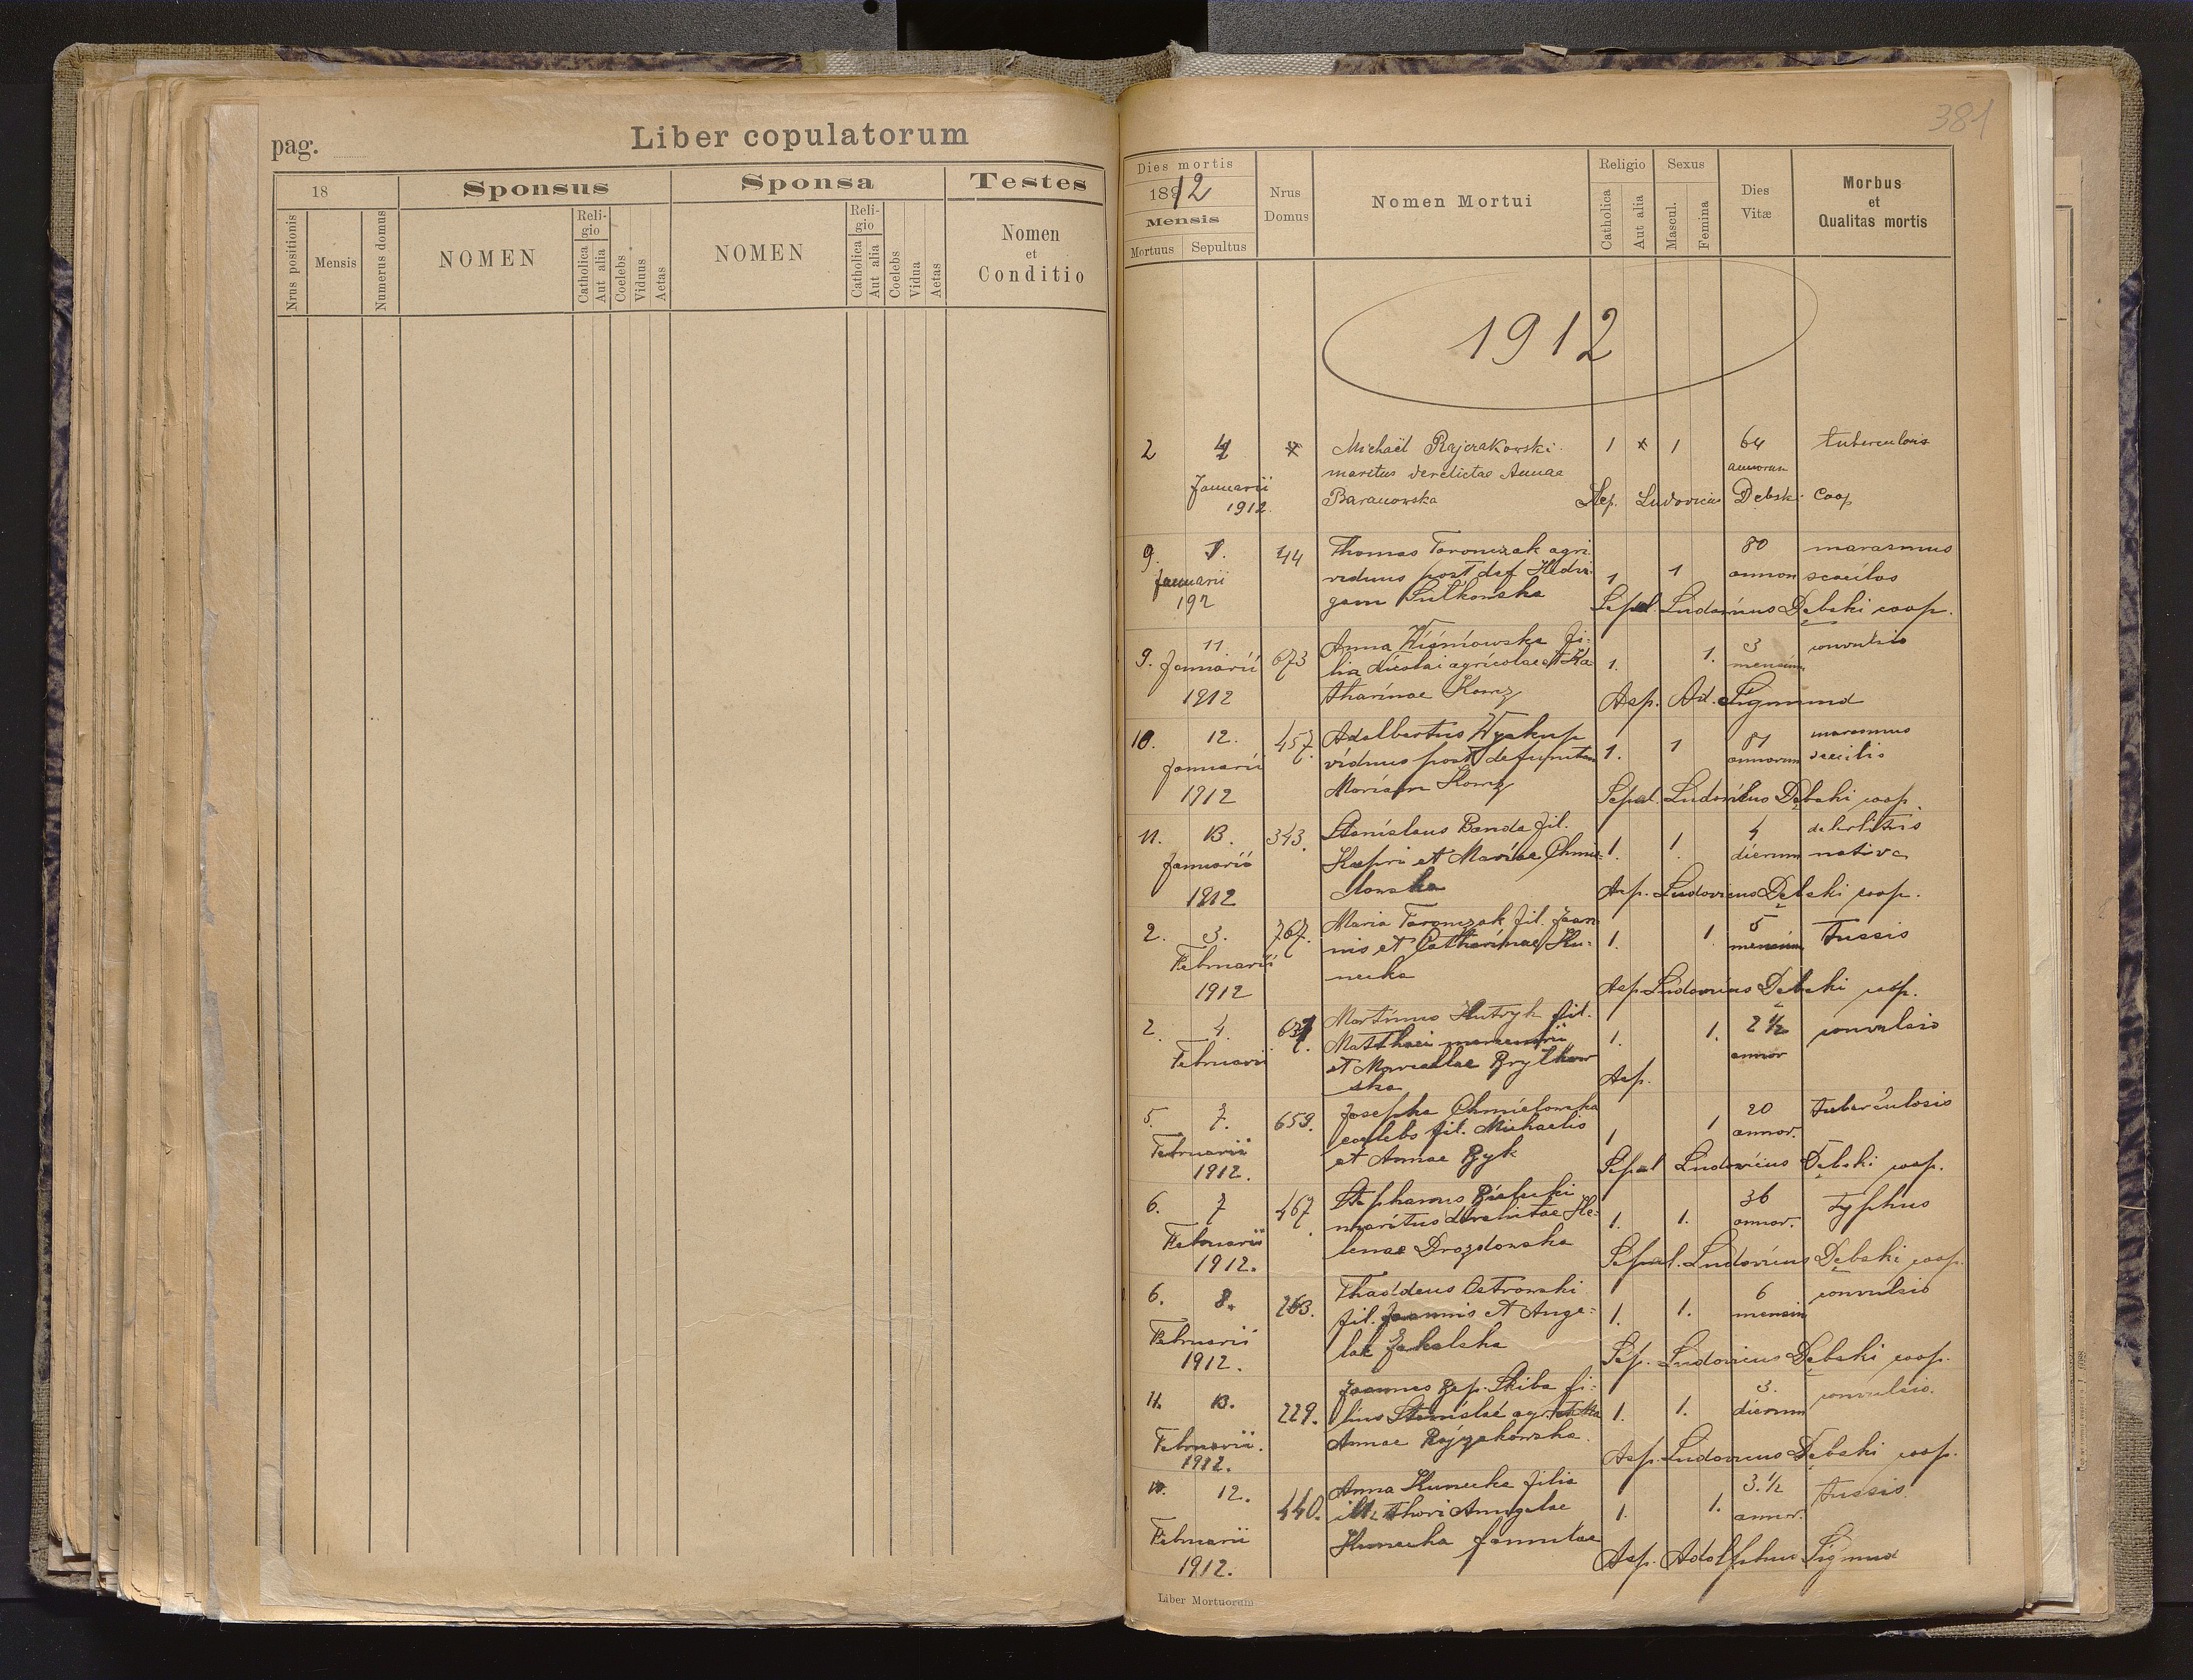 pag.
Liber copulatorum
18
Sponsus
Sponsa
Testes
Nrus positionis
Mensis
Numerus domus
NOMEN
Reli-
gio
Catholica
Aut alia
Coelebs
Viduus
Aetas
NOMEN
Reli-
gio
Catholica
Aut alia
Coelebs
Vidua
Aetas
Nomen
et
Conditio
381
Dies mortis
1912
Mensis
Mortuus Sepultus
Nrus
Domus
Nomen Mortui
Religio
Catholica
Aut alia
Sexus
Mascul.
Femina
Dies
Vitæ
Morbus
et
Qualitas mortis
1912
2 4 Michaël Rajczakowski 1 x 1 64 tuberculosis
maritus derelictae Annae annorum
Januarii
1912 Baranowska Sep. Ludovicus Dębski coop
9. 44 Thomas Toronczak agri. 80 marasmus
Januarii viduus post def Hedvi- 1 1 annor
192 gam Sulkowska Sepel. Ludovicus Dębski coop.
9. 11. 673 Anna Wisniowska fi- 1. 1. 3 convulsio
Januarii lia Nicolai agricolae et Ka- mensium
1912 tharinae Asp. Ad. Sigmund
10. 12. 457. Adalbertus 1. 1 81 marasmus
Januarii viduus post defunctam annorum senilis
1912 Mariam Sepel. Ludovicus Dębski coop.
11. 13. 343. Stanislaus Banda fil. 1. 1. 4 debilitas
Januarii et Mariae Chmie- dierum nativa
1912 lowska Asp. Ludovicus Dębski coop.
2. 3. 767. Maria Toronczak fil. Joan 1. 1. 5 Tussis
Februarii nis et Catharinae Ku- mensium
1912 necka Asp. Ludovicus Dębski coop.
2. 4. Martinus fil. 1. 1. 2 1/2 convulsio
Februarii Matthaei annor
et Marcellae
ska Asp.
5. 7. 659. Josepha Chmielowska 1 1 20 Tuberculosis
Februarii coelebs fil. Michaelis annor.
1912. et Annae Byk Sepel Ludovicus Dębski coop.
6. 7 467. Stephanus Bialecki 1. 1. 36 Typhus
Februarii maritus derelictae He- annor.
1912. lenae Drozdowska Sepel. Ludovicus Dębski coop.
6. 8. 263. Thaddeus Ostrowski 1. 1. 6 convulsio
Februarii fil. Joannis et Ange- mensium
1912. lae Sep. Ludovicus Dębski coop.
11. 13. 229. Joannes Bap. Skiba fi- 1. 1. 3. convulsio.
Februarii. lius agr. dierum
1912. Annae Rajzakowska. Asp. Ludovicus Dębski coop.
12. 440. Anna Kunecka filia 1. 1. 3. 1/2 Tussis
Februarii illi thori annor.
1912. Kunecka famulae Asp. Adolphus Sigmund
Liber Mortuorum